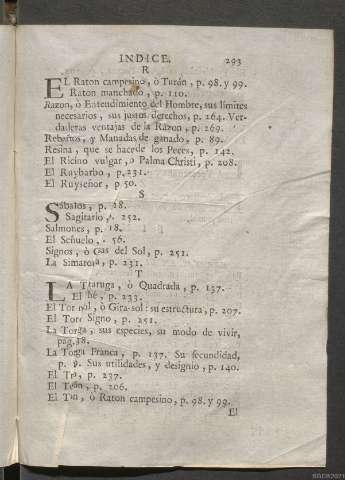 INDICE. 293
R
EL Raton campesino, ò Turán, p. 98. y 99.
Raton manchado, p. 110.
Razon, ò Entendimiento del Hombre, sus límites
necesarios, sus justos derechos, p. 264. Ver-
daderas ventajas de la Razon, p. 269.
Rebaños, y Manadas de ganado, p. 89.
Resina, que se hace de los Peces, p. 142.
El Ricino vulgar, o Palma Christi, p. 208.
El Ruybarbo, p. 231.
El Ruyseñor, p 50.
S
Sábalos, p. 18.
Sagitario, 252.
Salmones, p. 18.
El Señuelo, 56.
Signos, ò del Sol, p. 251.
La p. 231.
T
LA ò Quadrada, p. 137.
El p. 233.
El ò Gira-sol: su estructura, p. 207.
El Signo, p. 251.
La sus especies, su modo de vivir,
pag. 38.
La Franca, p. 137. Su fecundidad,
p. Sus utilidades, y designio, p. 140.
El p. 237.
El p. 206.
El ò Raton campesino, p. 98. y 99.
El